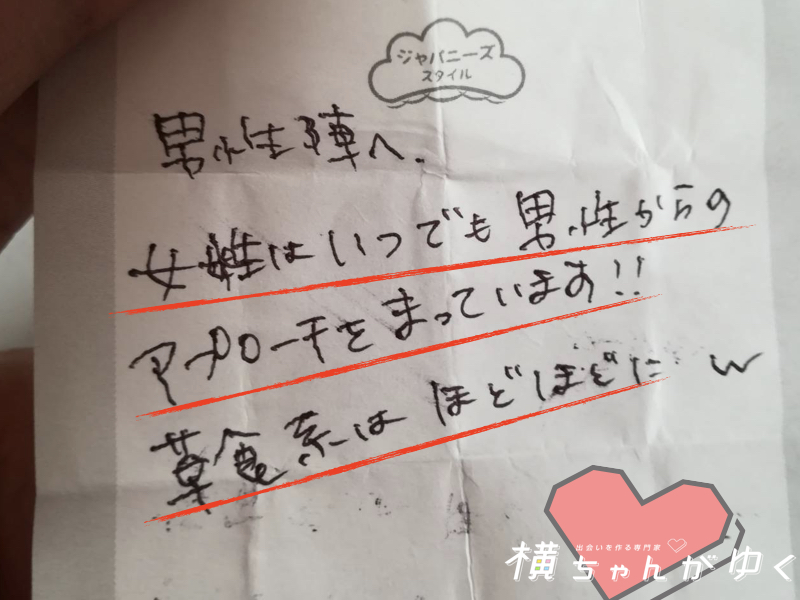 ジャパニーズ
スタイル
男性陣へ.
女性はいつでも男性からの
アプローチをまっています!!
草食系はほどほどに w
出会いを作る専門家
横ちゃんがゆく